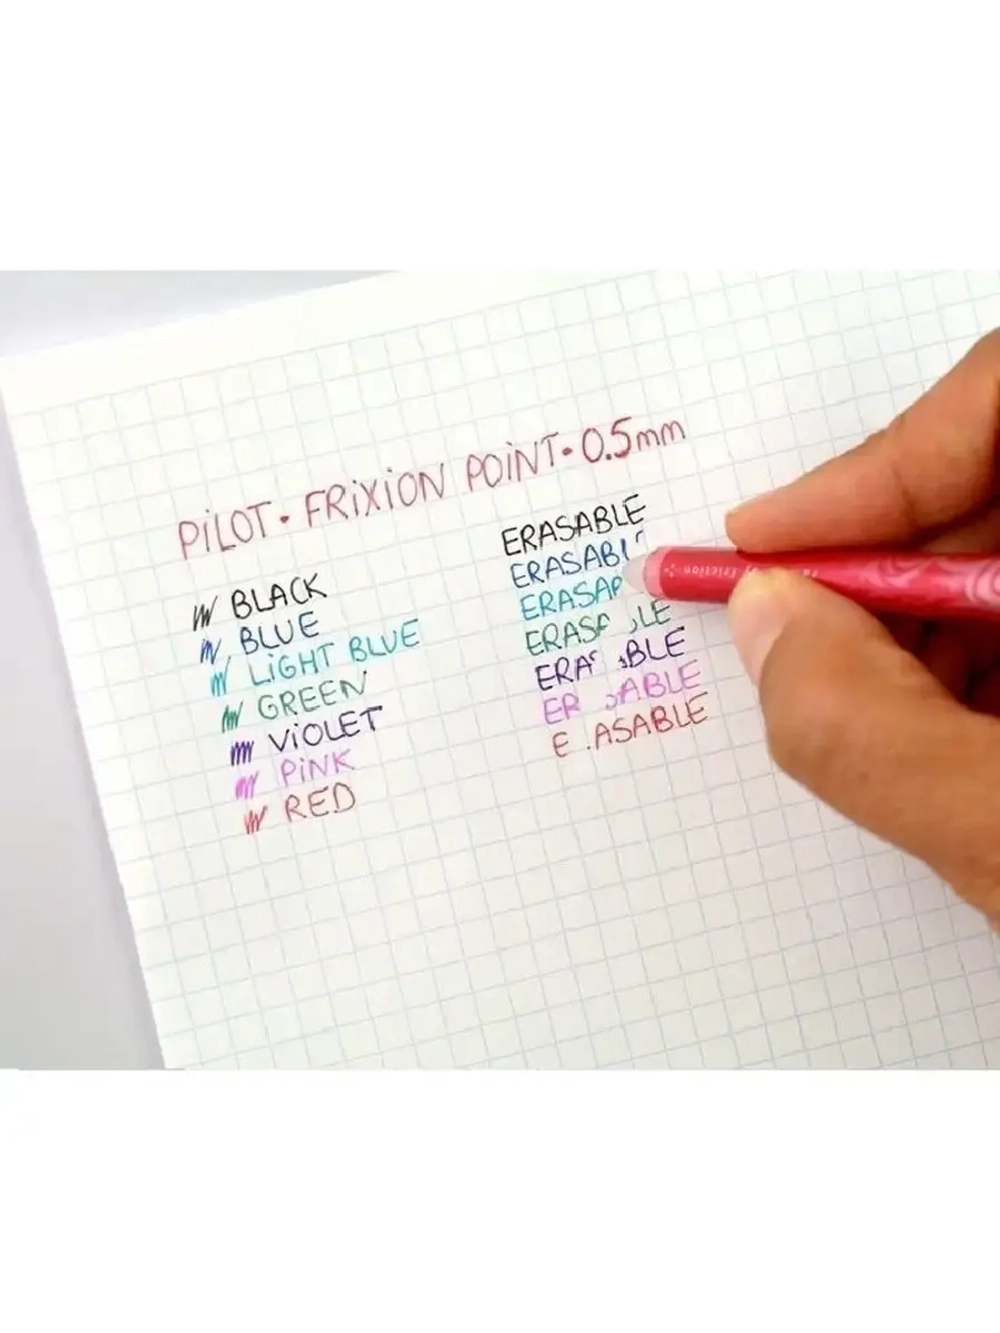 PiLOT • FRiXiON POiNT • 0.5mm
BLACK
BLUE
LiGHT BLUE
GREEN
ViOLET
PiNK
RED
ERASABLE
ERASABL
ERASA
ERAS LE
ERA BLE
ER ABLE
E ASABLE
friction